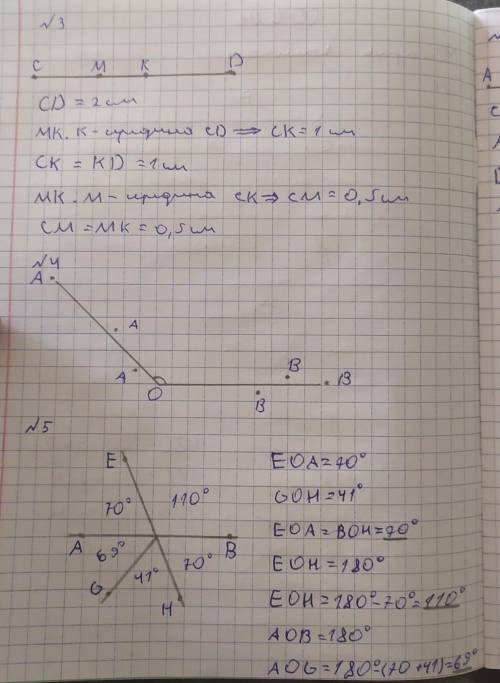 №3
C M K D
CD = 2 см
МК. К - середина CD ⇒ CK = 1 см
CK = KD = 1 см
МК. М - середина CK ⇒ CM = 0,5 см
CM = MK = 0,5 см
№4
A
A
A
O
B
B
B
№5
E
70° 110°
A B
69° 41° 70°
G
H
EOA = 70°
GOH = 41°
EOA = BOH = 70°
EOH = 180°
EOH = 180° - 70° = 110°
AOB = 180°
AOG = 180° - (70 + 41) = 69°
A